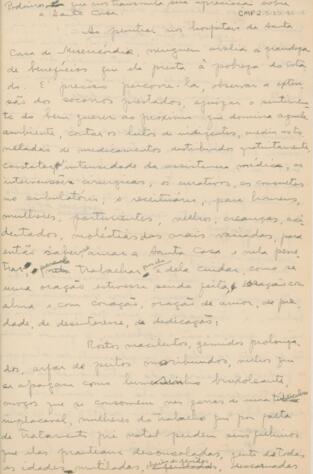 que nos transmita sua apreciação sobre
a Santa Casa. CMP 2.3.25.
Ao penetrar nos hospitais da Santa
Casa de Misericórdia, ninguem avalia a grandeza
de beneficios que ela presta à pobreza do
do. E' preciso percorre-la, observar a exten-
são dos socorros prestados,
do bem querer ao proximo que domina aquele
ambiente, contar os leitos de indigentes,
de medicamentos distribuidos gratuitamente,
constatar a intensidade da assistencia médica, as
intervenções cirurgicas, os curativos, as consultas
no ambulatório, o receituário, para homens,
mulheres, parturientes, velhos, creanças, aci-
dentados, moléstias das mais variadas, para
então saber amar a Santa Casa e nela pene-
trar, trabalhar e dela cuidar como se
uma oração estivesse sendo feita, oração com
alma e com coração, oração de amor, de pie-
dade, de desinteresse, de dedicação.
Rostos macilentos, gemidos prolonga-
dos, arfar de peitos moribundos, velhos que
se apagam como lamparina bruxoleante,
moços que se consomem nas garras de uma
implacavel, mulheres do trabalho que por falta
de tratamento pré natal perdem seus filhinhos
que elas pranteam desconsoladas, gente de todas
as idades mutiladas, descarnadas